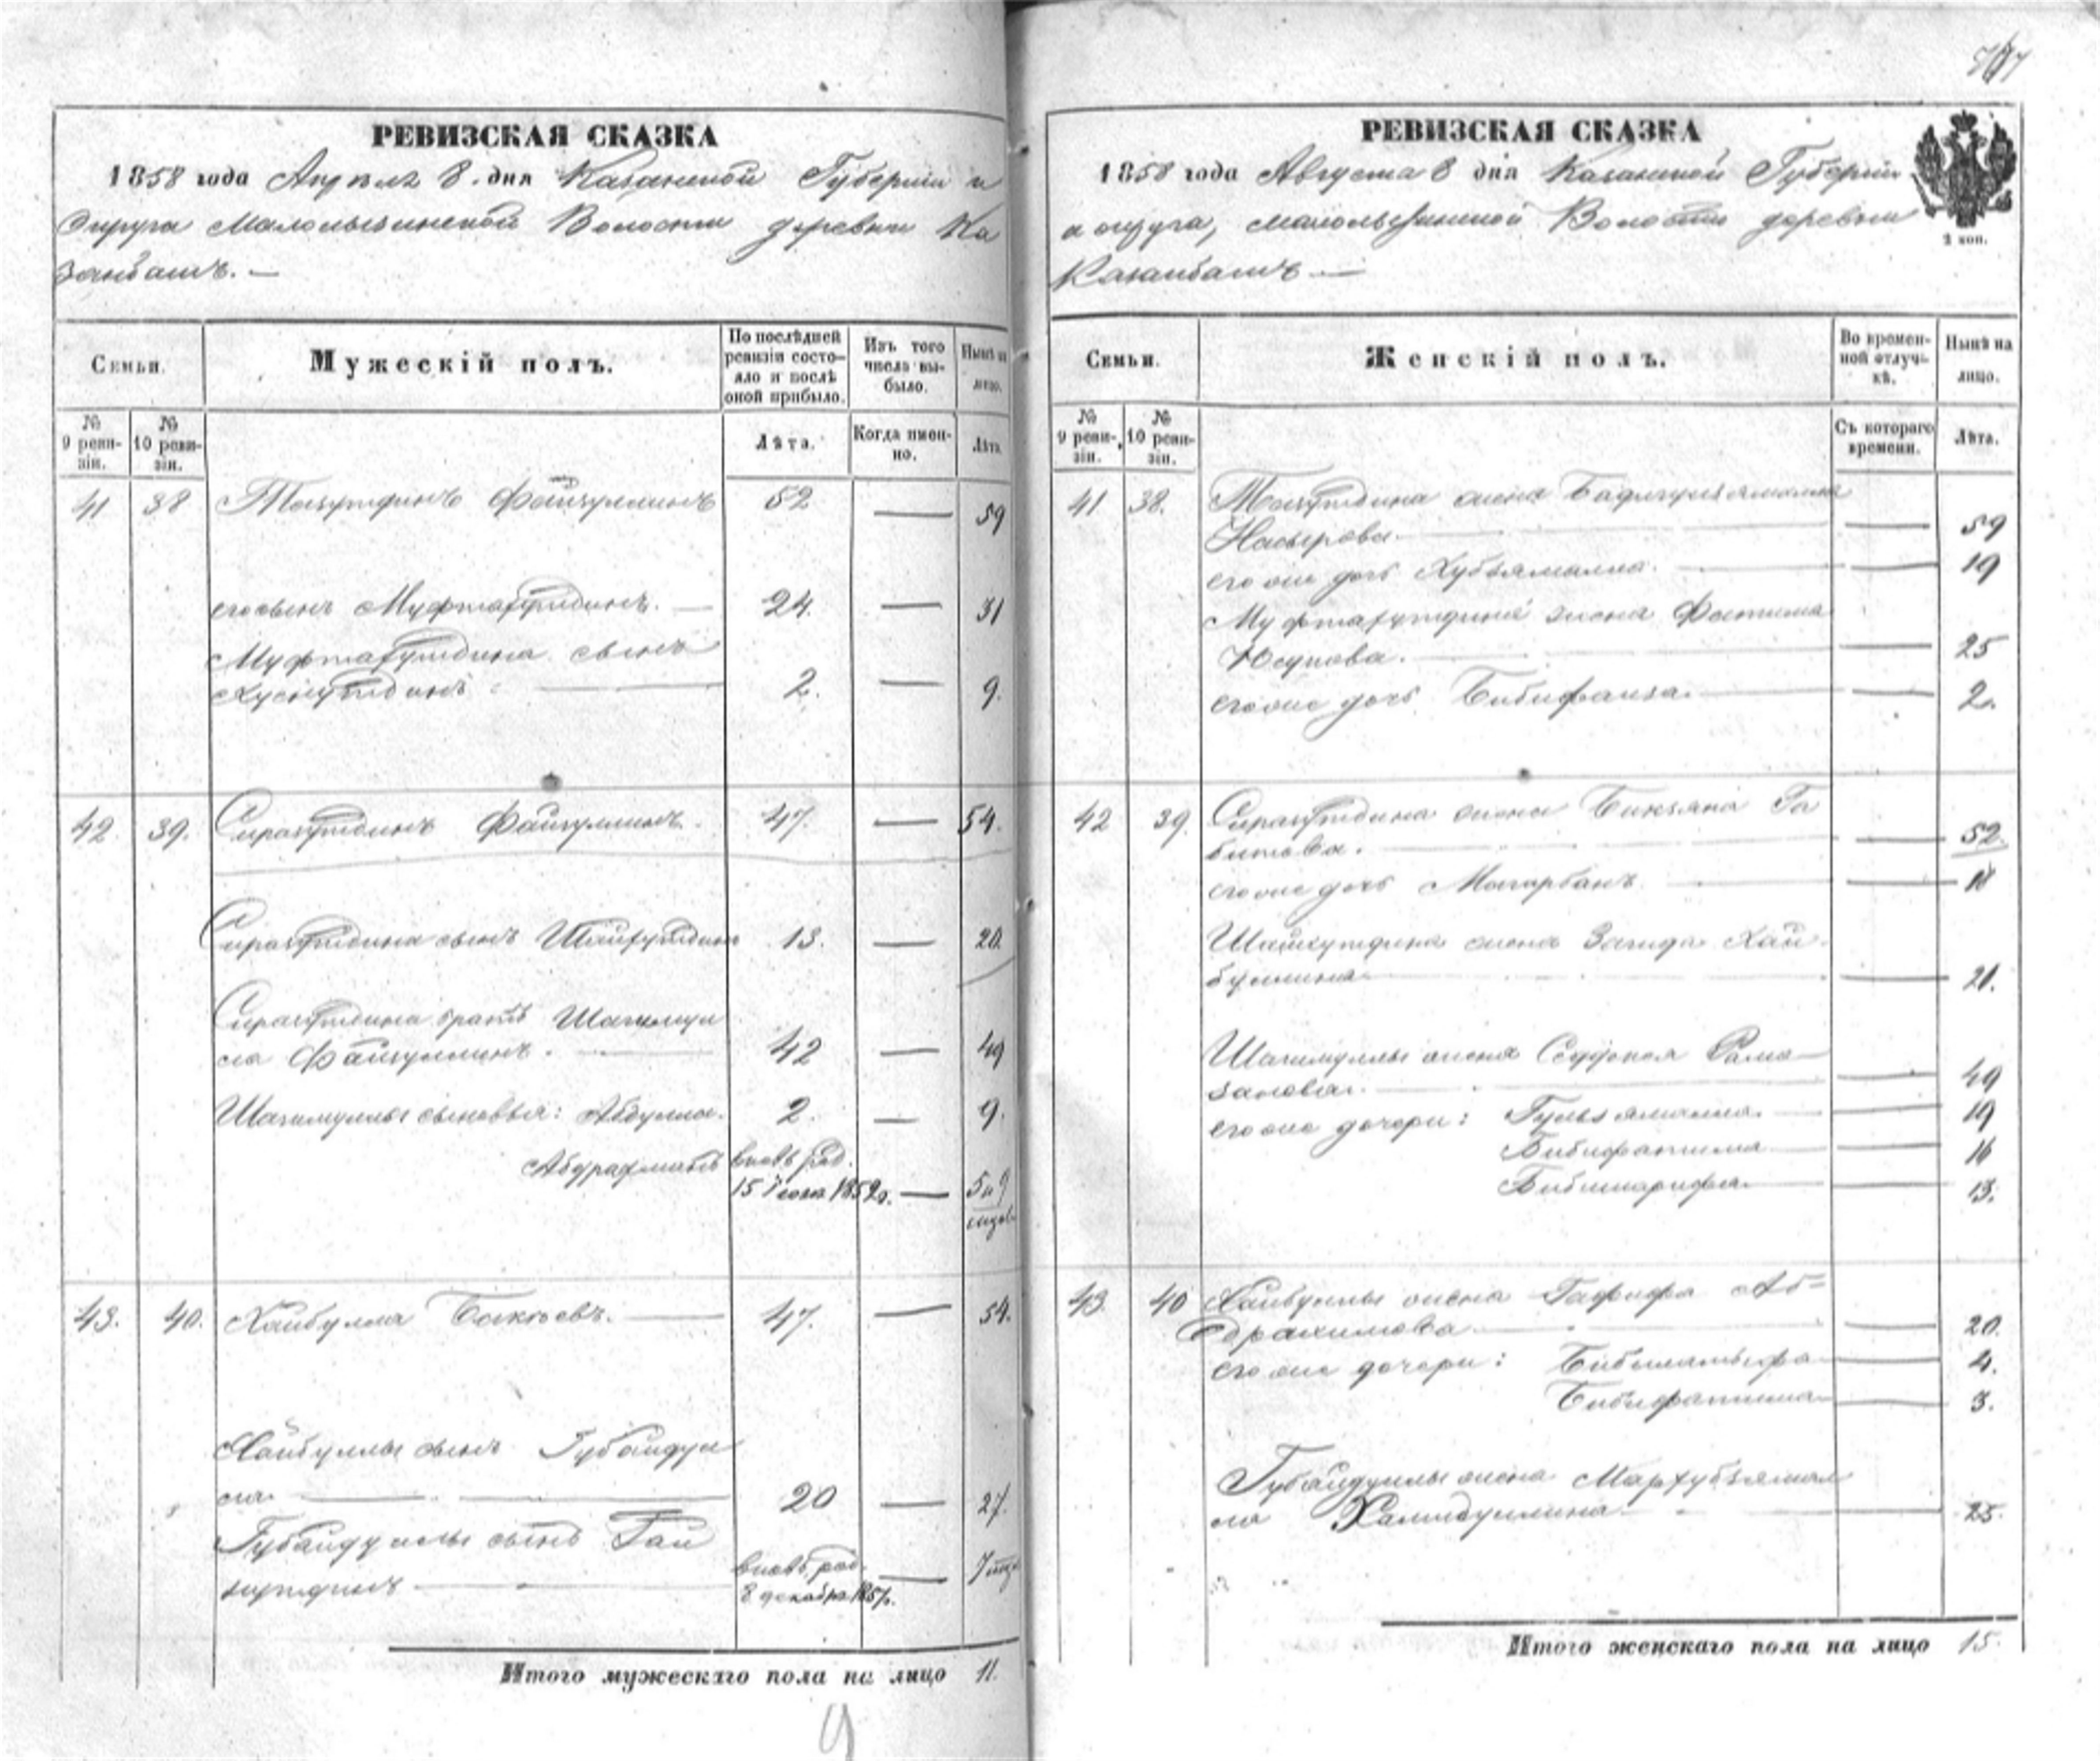 РЕВИЗСКАЯ СКАЗКА
1858 года Апреля 8. дня Казанской Губернии и
Округа Малолызинской Волости деревни Ка
занбашъ. —
Семьи.
Мужескій полъ.
По послѣдней ревизіи состояло и послѣ оной прибыло.
Изъ того числа выбыло.
Нынѣ на лицо.
№ 9 ревизіи.
№ 10 ревизіи.
Лѣта.
Когда именно.
Лѣта.
41 38 Тазутдинъ Файзуллинъ 52 — 59
его сынъ Муфтахутдинъ. — 24. — 31
Муфтахутдина сынъ
Хуснутдинъ — 2. — 9.
42. 39. Сиразутдинъ Файзуллинъ. 47. — 54.
Сиразутдина сынъ Шайхутдинъ 13. — 20.
Сиразутдина братъ Шагимул
ла Файзуллинъ. — 42 — 49
Шагимуллы сыновья: Абдулла. 2. — 9.
Абдрахманъ вновь род.
15 Іюня 1852г. — 5 и 9
мѣсяц.
43. 40. Хайбулла Бикѣевъ. — 47. — 54.
Хайбуллы сынъ Губайдул
ла — 20 — 27.
Губайдуллы сынъ Гай
нутдинъ — вновь род.
8 декабря 1857. —
Итого мужескаго пола на лицо 11.
9
РЕВИЗСКАЯ СКАЗКА
1858 года Августа 8 дня Казанской Губерніи
и округа, малолызинской Волости деревни
Казанбашъ —
2 коп.
Семьи.
Женскій полъ.
Во временной отлучкѣ.
Нынѣ на лицо.
№ 9 ревизіи.
№ 10 ревизіи.
Съ котораго времени.
Лѣта.
41 38. Тазутдина жена
Насырова. — 59
его же дочь Хубзямална. — 19
Муфтахутдина жена Фатима
Юсупова. — 25
его же дочь Бибифаиза. — 2.
42 39. Сиразутдина жена Бикзяна Га
битова. — 52.
его же дочь Магарбанъ — 18
Шайхутдина жена Загида Хай
буллина — 21.
Шагимуллы жена Рама
занова. — 49
его же дочери: Гульзямалла. — 19
Бибифатима — 16
Бибишарифа — 13.
43. 40 Хайбуллы жена Гафифа Аб=
драхимова — 20.
его же дочери: — 4.
Бибифатима — 3.
Губайдуллы жена Мархубзямал
ла Хамидуллина — 25.
Итого женскаго пола на лицо 15.